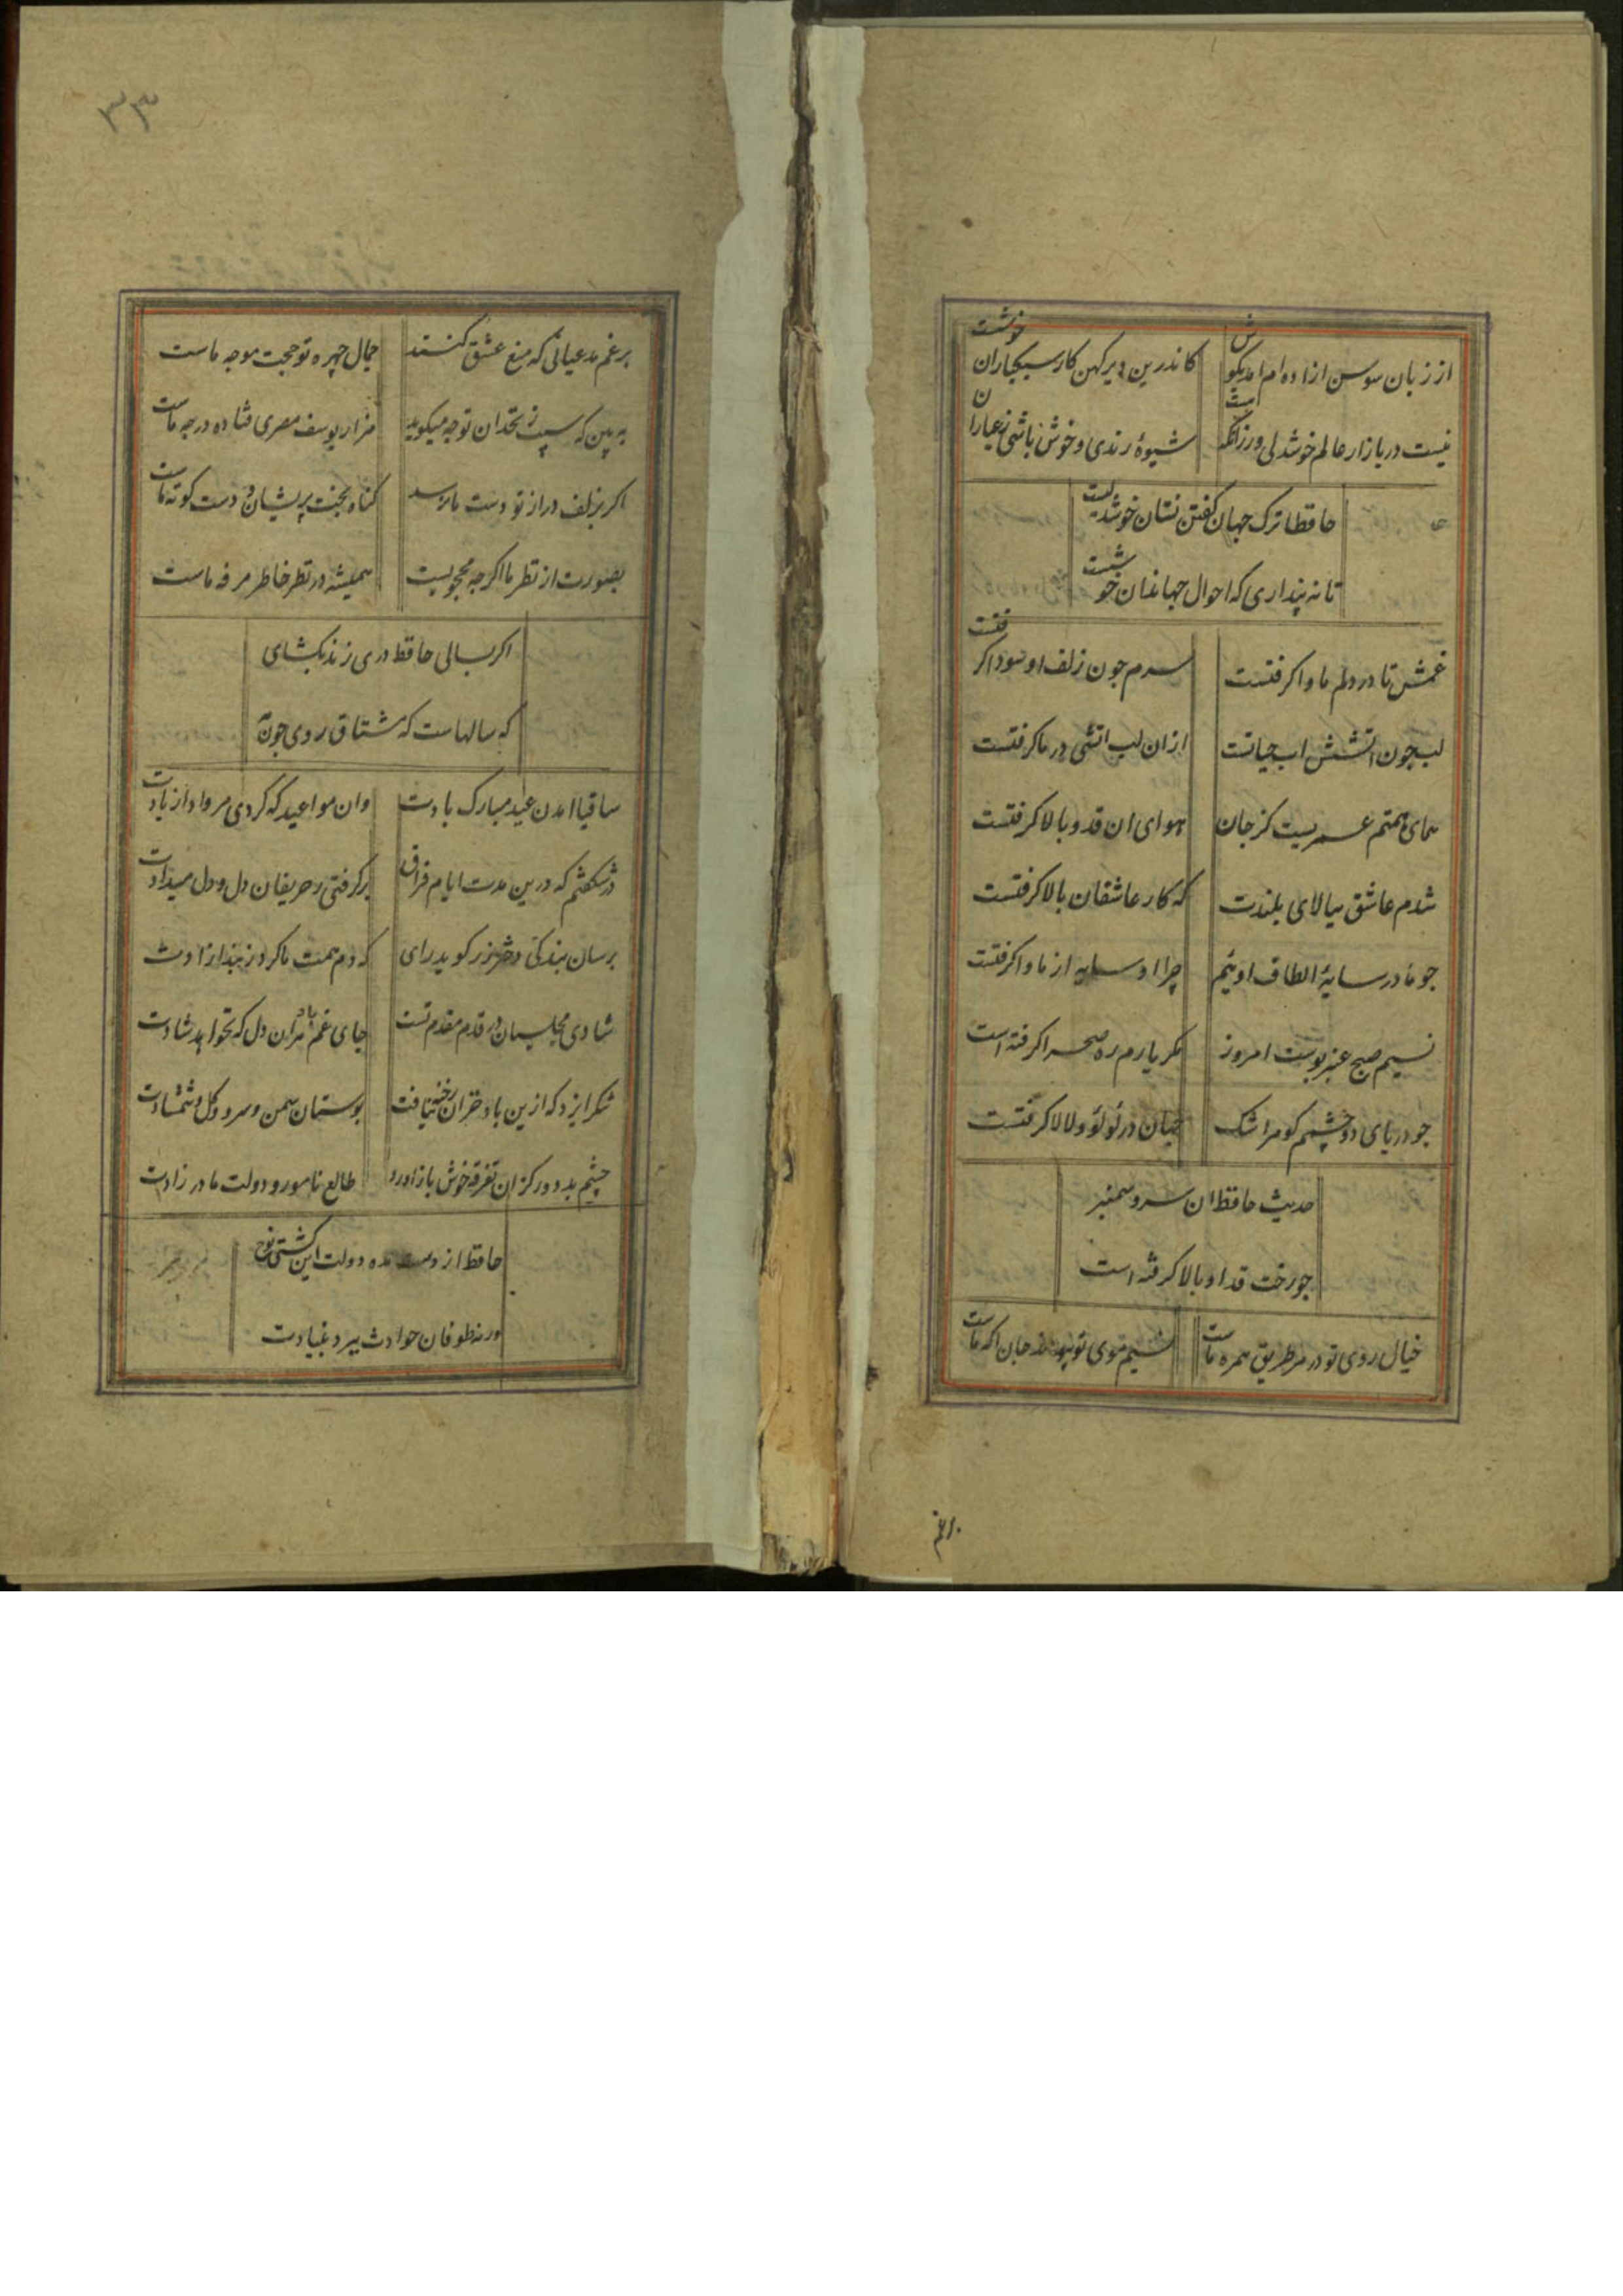 از زبان سوسن ازاده ام امد بگوش
کاندرین دیر کهن کار سبکباران خوشست
نیست در بازار عالم خوشدلی ورزانکه است
شیوهٔ رندی و خوش باشی عیاران
حافظا ترک جهان گفتن نشان خوشدلیست
تا نه پنداری که احوال جهانداران خوشست
غمش تا در دلم ماوا کرفتست
سرم جون زلف او سودا کرفتست
لب جون اتشش اب حیاتست
ازان لب اتشی در ما کرفتست
همای همتم عمریست کز جان
هوای ان قد و بالا کرفتست
شدم عاشق ببالای بلندت
که کار عاشقان بالا کرفتست
جو ما در سایهٔ الطاف اوئیم
چرا او سایه از ما وا کرفتست
نسیم صبح عنبر بوست امروز
مکر یارم ره صحرا کرفته است
جو دریای دو چشمم کو مرا اشک
جهان در لولو و لالا کرفتست
حدیث حافظ ان سرو سمنبر
جو رخت قد او بالا کرفته است
خیال روی تو در هر طریق همره ماست
نسیم موی تو پیوند جان اکه ماست
برغم
۳۳
برغم مدعیانی که منع عشق کنند
جمال چهره تو حجت موجه ماست
به بین که سیب زنخدان تو جه میکوید
هزار یوسف مصری فتاده در جه ماست
اکر بزلف دراز تو دست ما نرسد
کناه بخت پریشان و دست کوته ماست
بصورت از نظر ما اکر جه محجوبست
همیشه در نظر خاطر مرفه ماست
اکر بسالی حافظ دری زند بکشای
که سالهاست که مشتاق روی جون
ساقیا امدن عید مبارک بادت
وان مواعید که کردی مرواد از یادت
در شکفتم که درین مدت ایام فراق
برکرفتی ز حریفان دل و دل میدادت
برسان بندکی دختر رز کو بدر ای
که دم همت ما کرد ز بند ازادت
شادی مجلسیان در قدم مقدم تست
جای غم باد هران دل که نخواهد شادت
شکر ایزد که ازین باد خزان رخنه نیافت
بوستان سمن و سرو و کل و شمشادت
چشم بد دور کزان تفرقه خوش باز اورد
طالع نامور و دولت مادر زادت
حافظ از دست مده دولت این کشتی نوح
ورنه طوفان حوادث ببرد بنیادت